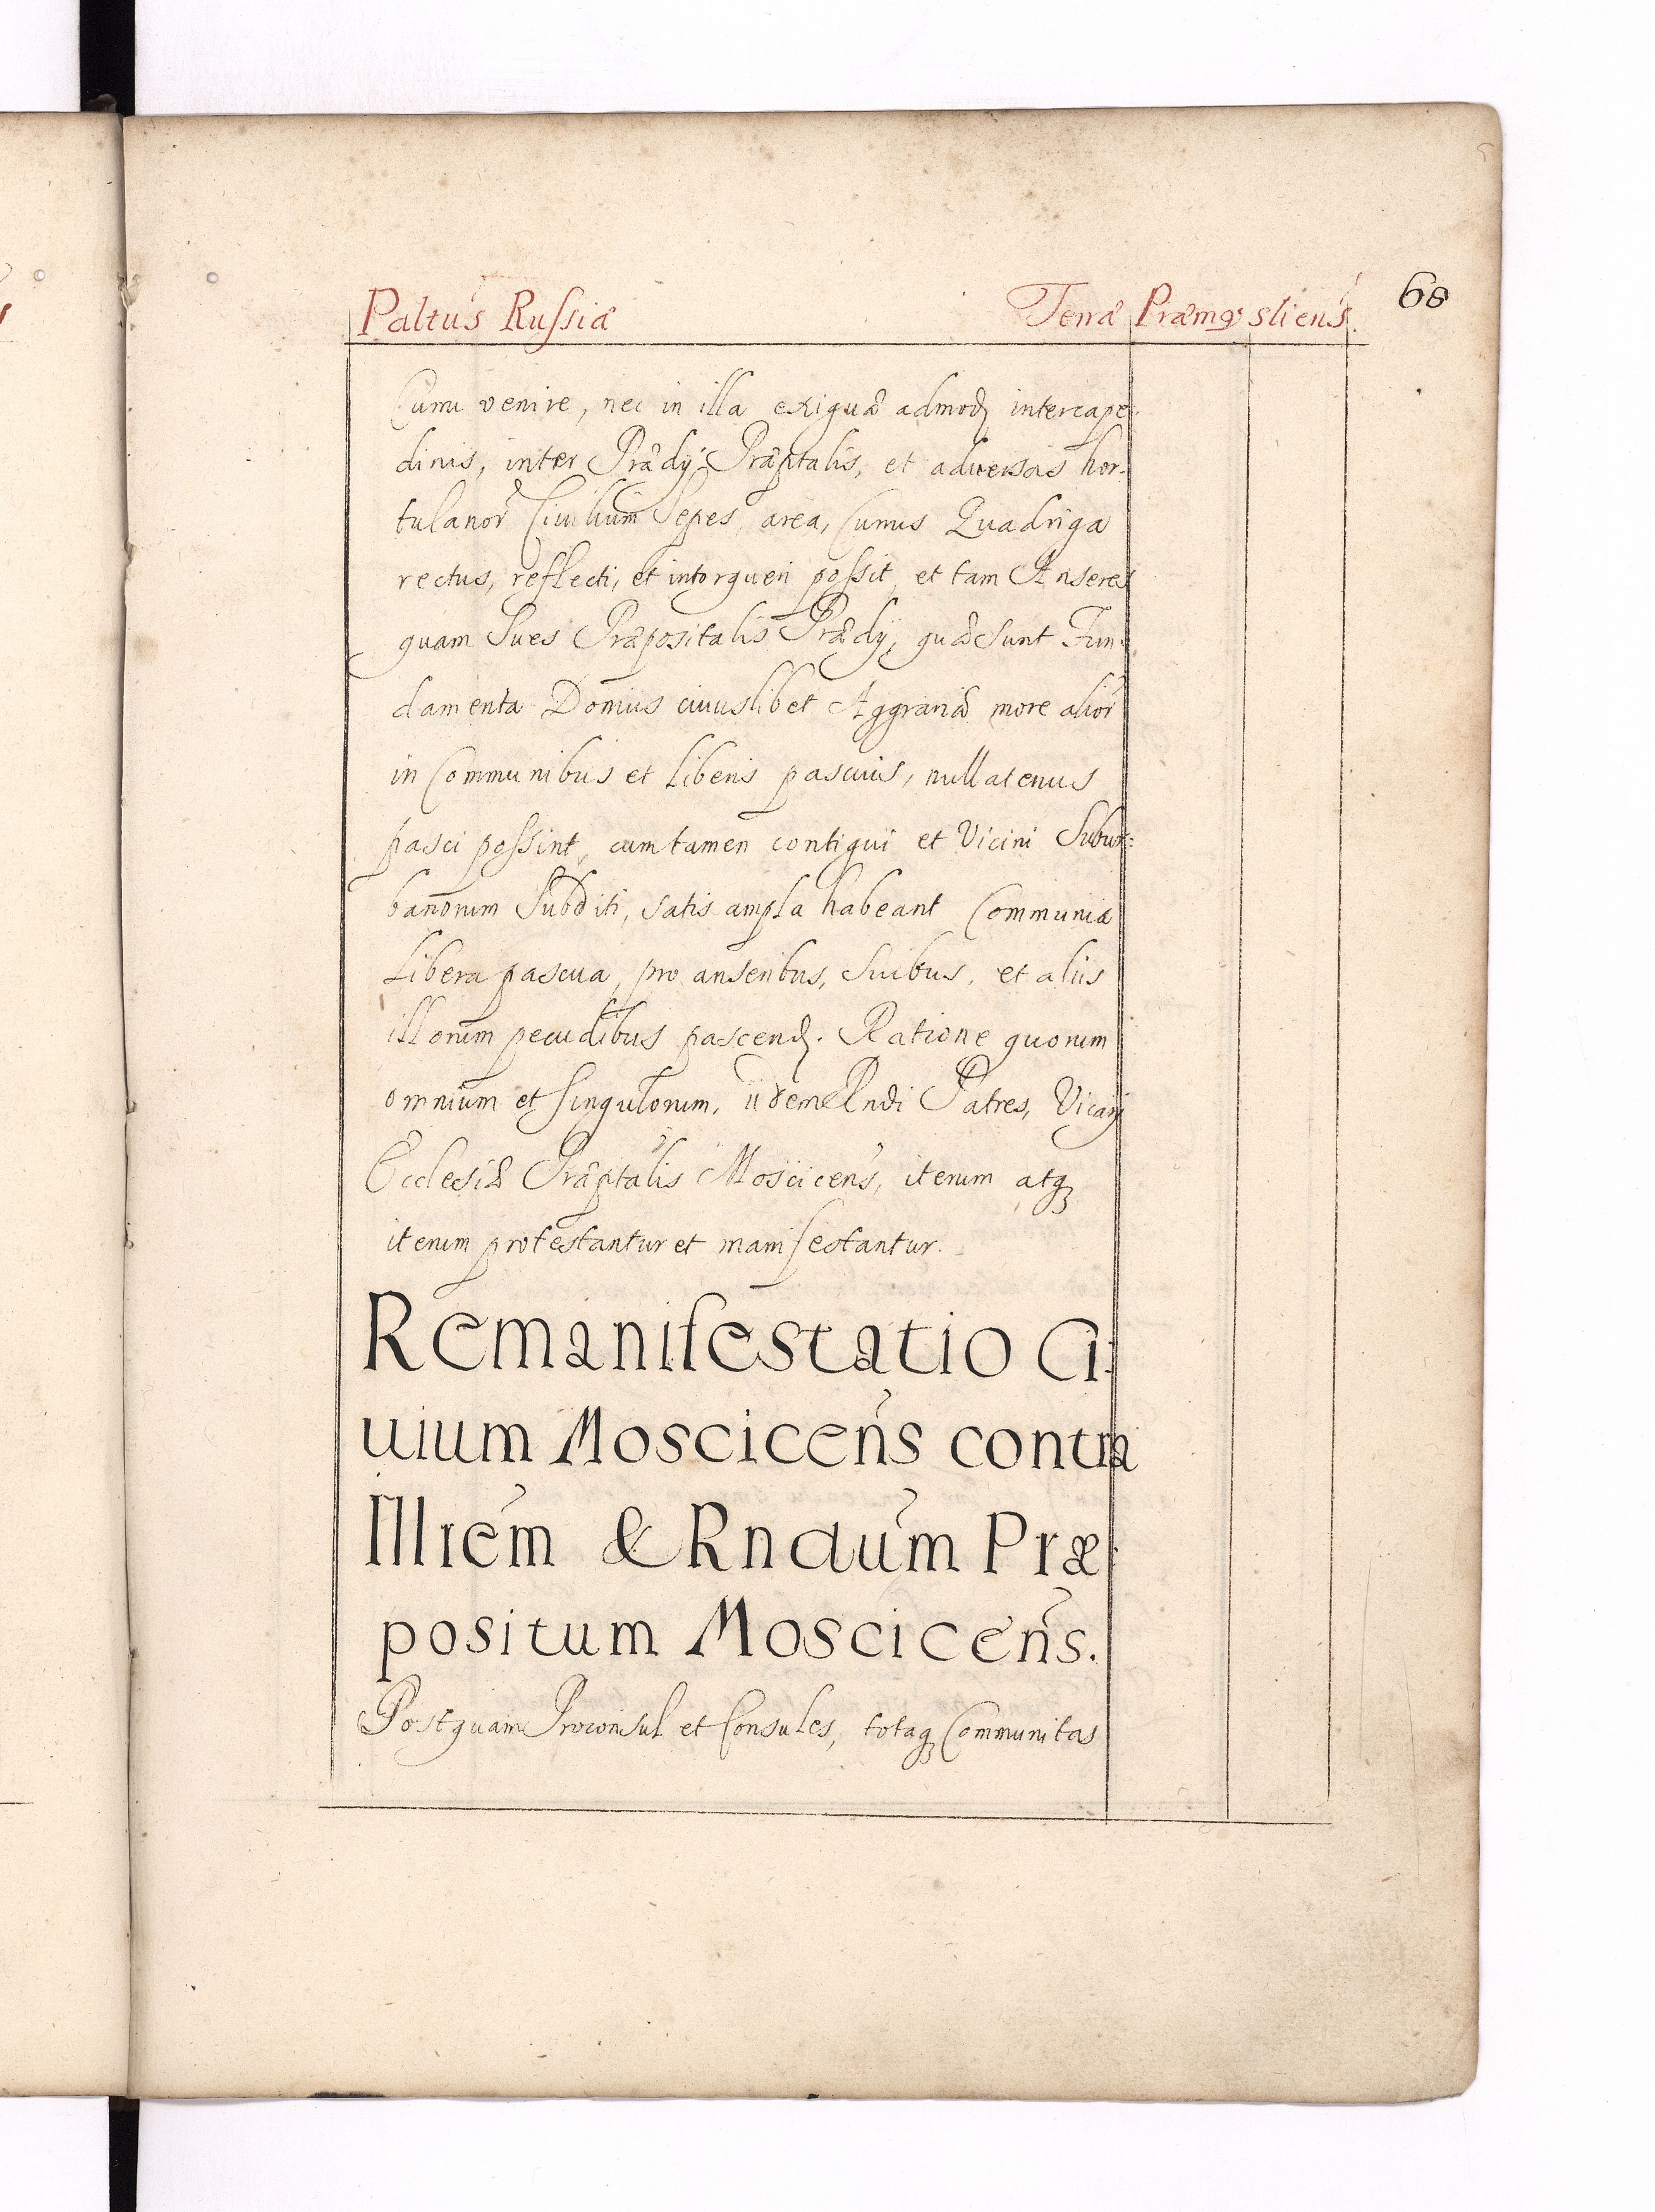 Paltus Russiæ Terræ Præmysliens.
68
Curru venire, nec in illa exiguæ admod intercape:
dinis, inter Prædÿ Præptalis, et adversas hor:
tulanor Civilium Sepes, area, Currus Quadriga
rectus, reflecti, et intorqueri possit, et tam Anseres
quam Sues Præpositalis Prædÿ, quæ Sunt Fun:
damenta Domus cuiuslibet Aggrariæ more alior
in Communibus et Liberis pascuis, nullatenus
pasci possint, cum tamen contigui et Vicini Subur:
banorum Subditi, satis ampla habeant Communia
Libera pascua, pro anseribus, Suibus, et aliis
illorum pecudibus pascend. Ratione quorum
omnium et singulorum, iidem Rndi Patres, Vicarÿ
Ecclesiæ Præptalis Moscicens, iterum atq
iterum protestantur et manifestantur.
Remanifestatio Ci:
uium Moscicens contra
Illrem & Rndum Præ:
positum Moscicens.
Postquam Proconsul et Consules, totaq Communitas